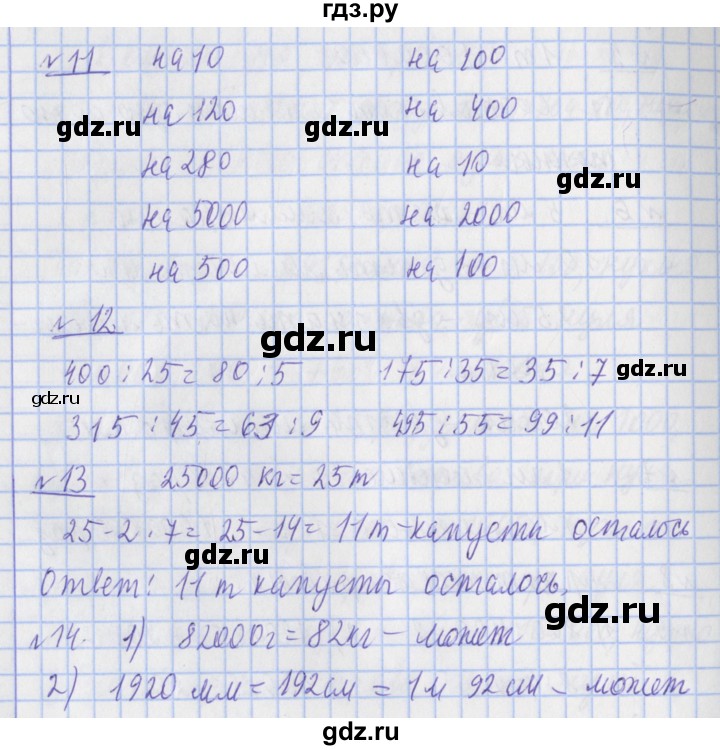 гдз.ру
№11 на 10 на 100
gdz.ru на 120 gdz.ru на 400
на 280 на 10 gdz.ru
на 5000 на 2000
на 500 на 100
№12. gdz.ru
400 : 25 = 80 : 5 175 : 35 = 35 : 7 gdz.ru
gdz.ru
315 : 45 = 63 : 9 495 : 55 = 99 : 11
№13 25000 кг = 25 т
25 - 2 · 7 = 25 - 14 = 11 т - капусты осталось
gdz.ru
Ответ: 11 т капусты осталось.
gdz.ru
№14. 1) 82000 г = 82 кг - может
2) 1920 мм = 192 см = 1 м 92 см - может
gdz.ru